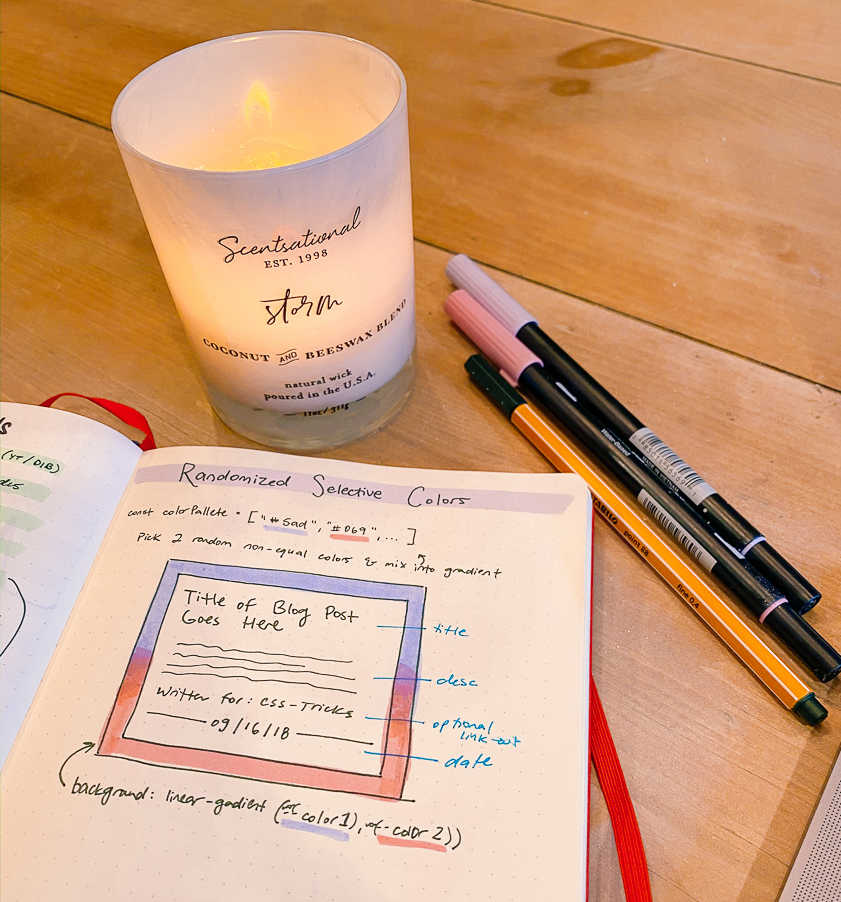 Scentsational
EST. 1998
storm
COCONUT AND BEESWAX BLEND
natural wick
poured in the U.S.A.
11oz/311g
(YT/DIB)
Randomized Selective Colors
const colorPallete = ["#5ad", "#D69", ... ]
Pick 2 random non-equal colors & mix into gradient
Title of Blog Post
Goes Here
Written for: CSS-Tricks
09/16/18
title
desc
optional
link-out
date
background: linear-gadient (color1), color2))
point 88
fine 0.4